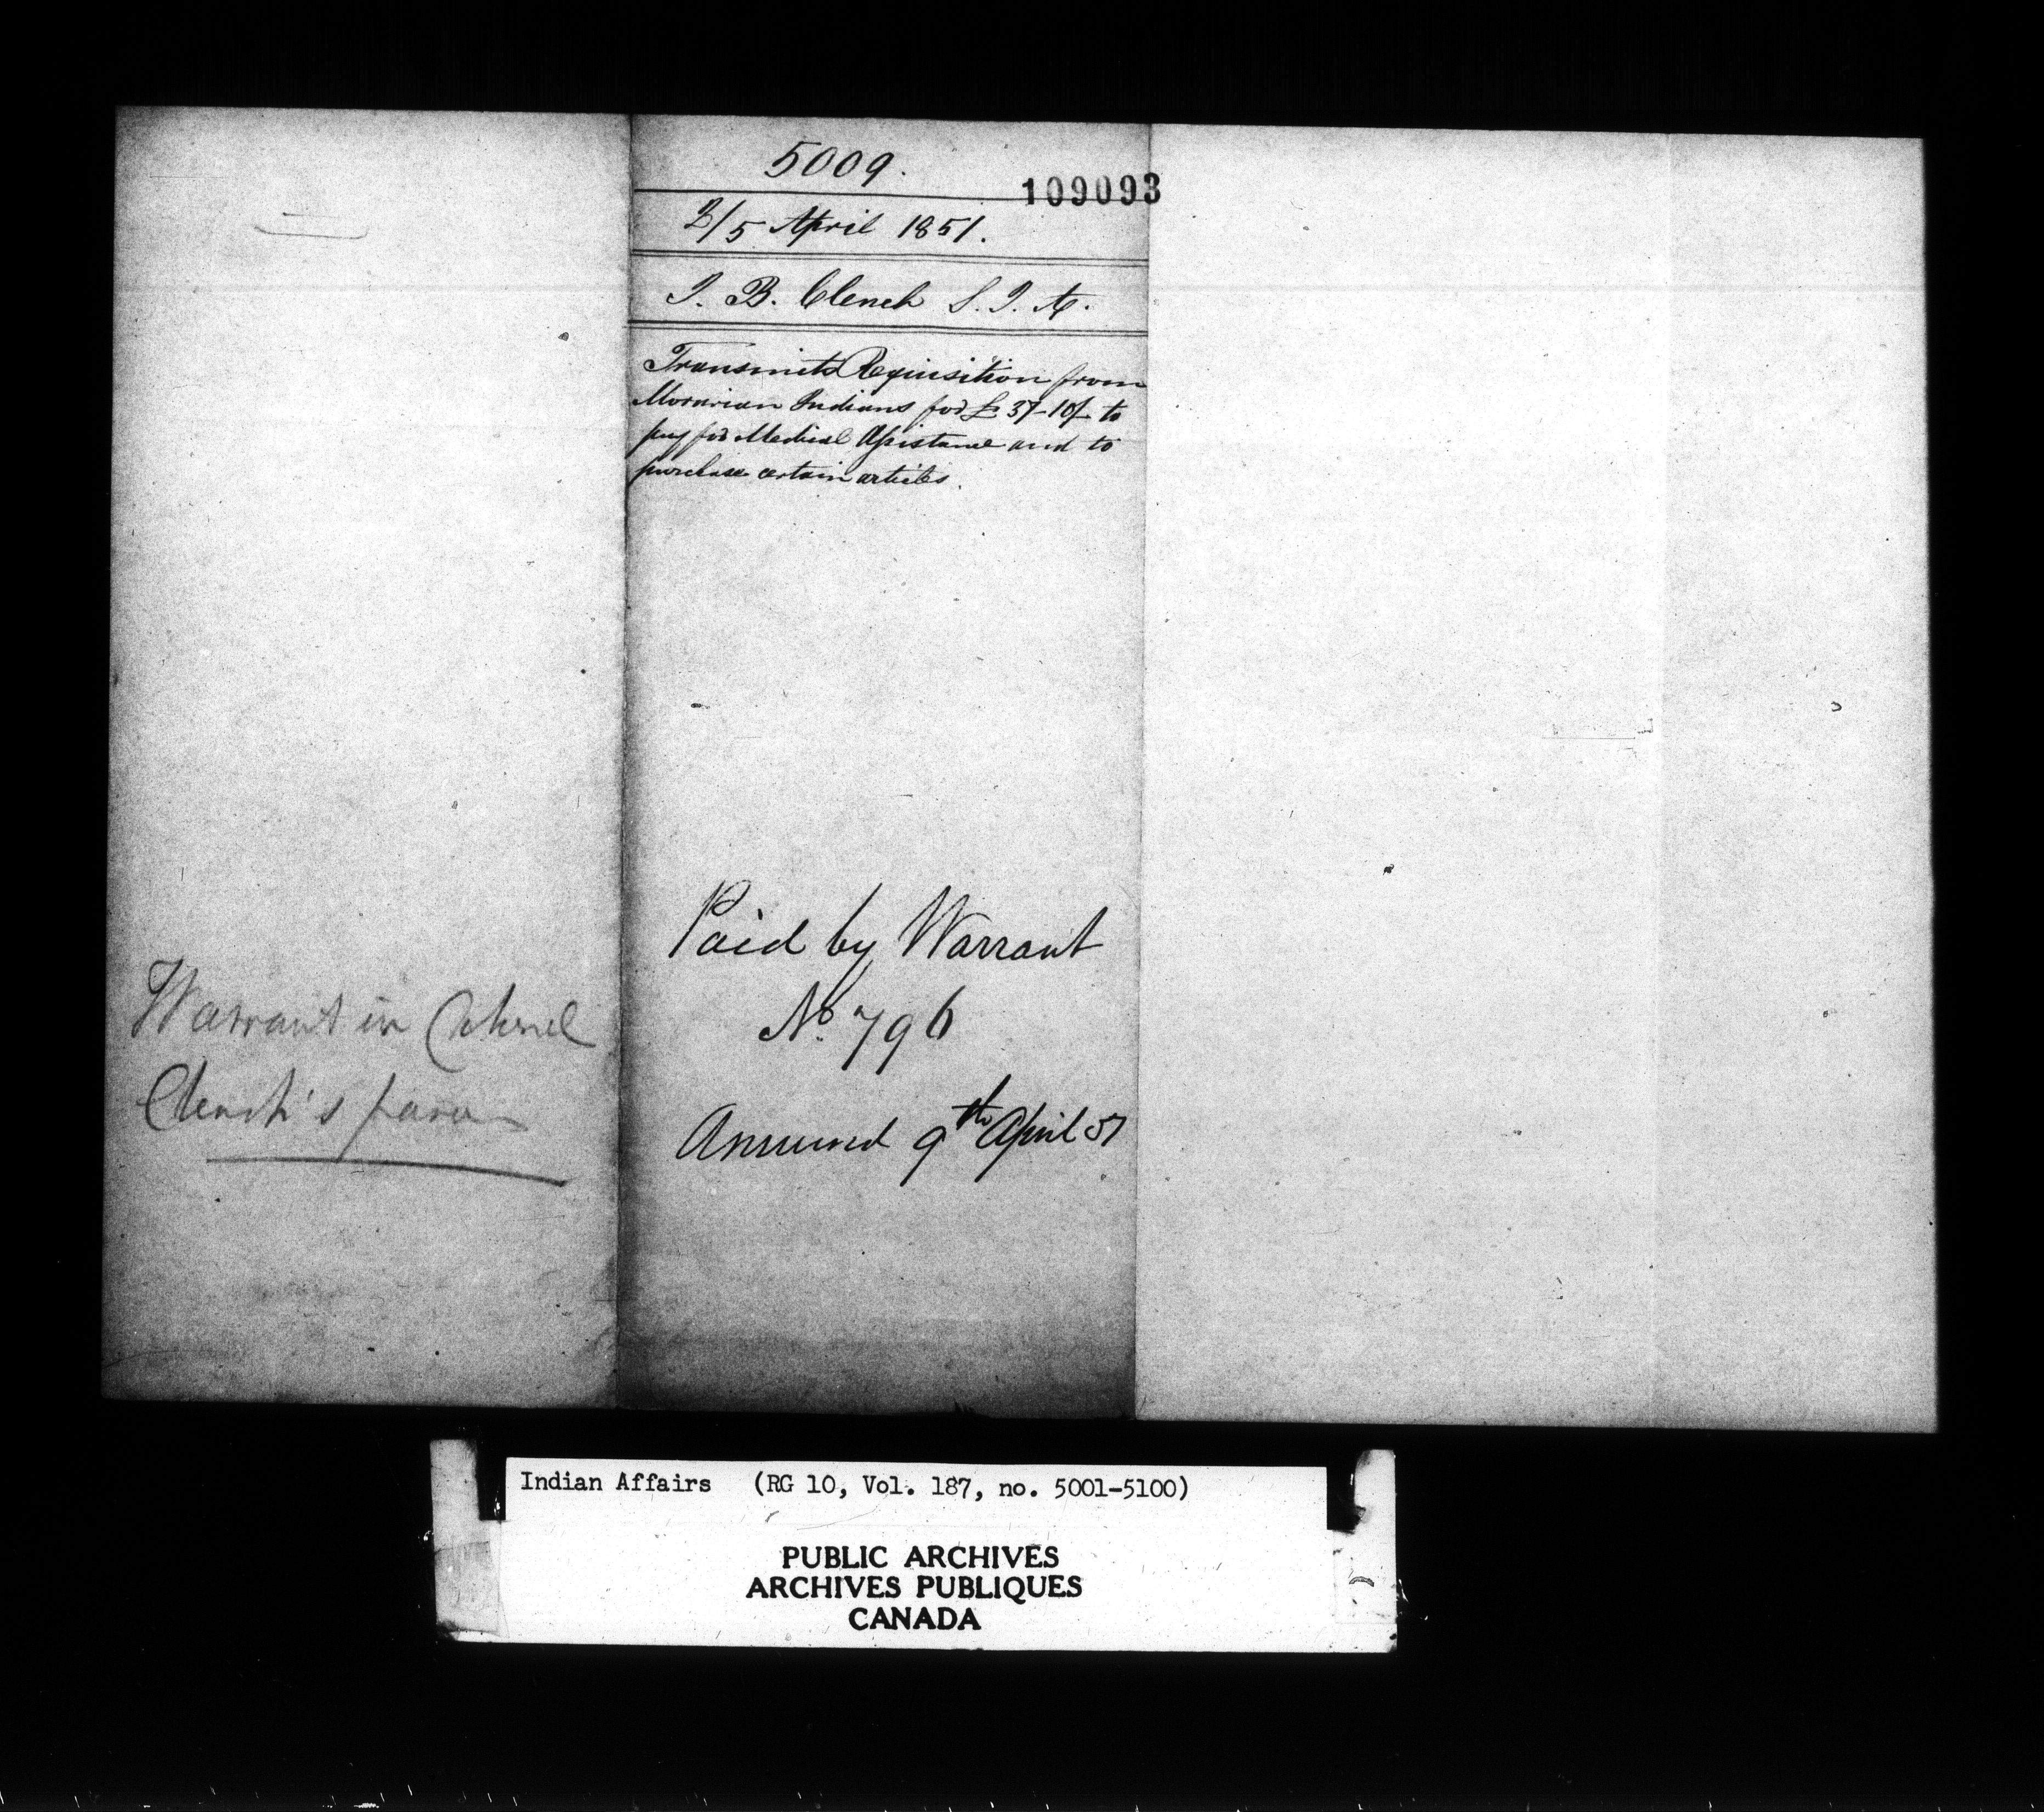 5009.
109093
2/5 April 1851.
J. B. Clench S. I. A.
Transmits Requisition from
Moravian Indians for £37-10/- to
pay for Medical Assistance and to
purchase certain articles.
Paid by Warrant
No. 796
Answered 9th April 51
Warrant in Colonel
Clench's favor
Indian Affairs (RG 10, Vol. 187, no. 5001-5100)
PUBLIC ARCHIVES
ARCHIVES PUBLIQUES
CANADA